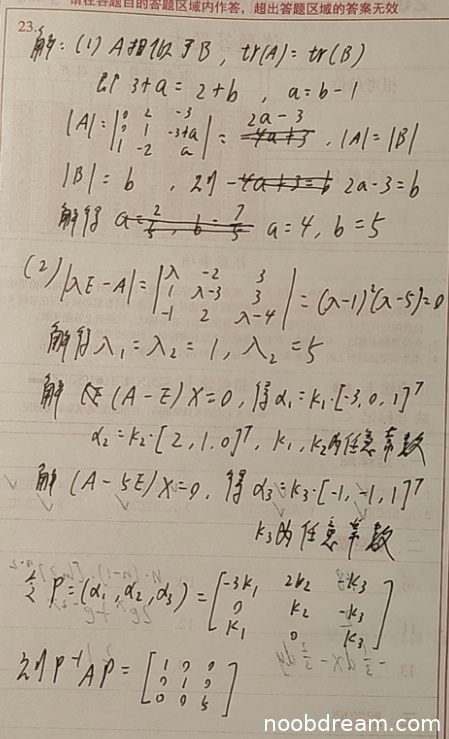 请在各题目的答题区域内作答，超出答题区域的答案无效
23.
解：(1) A相似于B, tr(A) = tr(B)
即 3+a = 2+b , a = b-1
|A| = |0 2 -3; 0 1 -3+a; 1 -2 a| = 4a+3 2a-3 , |A| = |B|
|B| = b , 则 -4a+3=b 2a-3=b
解得 a=2/5, b=7/5 a=4, b=5
(2) |λE-A| = |λ -2 3; 1 λ-3 3; -1 2 λ-4| = (λ-1)²(λ-5)=0
解得 λ₁=λ₂=1, λ₂=5
解 (A-E)X=0, 得 α₁=k₁·[-3,0,1]ᵀ
α₂=k₂·[2,1,0]ᵀ, k₁,k₂为任意常数
解 (A-5E)X=0, 得 α₃=k₃·[-1,-1,1]ᵀ
k₃为任意常数
令 P=(α₁,α₂,α₃) = [-3k₁ 2k₂ -k₃; 0 k₂ -k₃; k₁ 0 k₃]
则 P⁻¹AP = [1 0 0; 0 1 0; 0 0 5]
noobdream.com